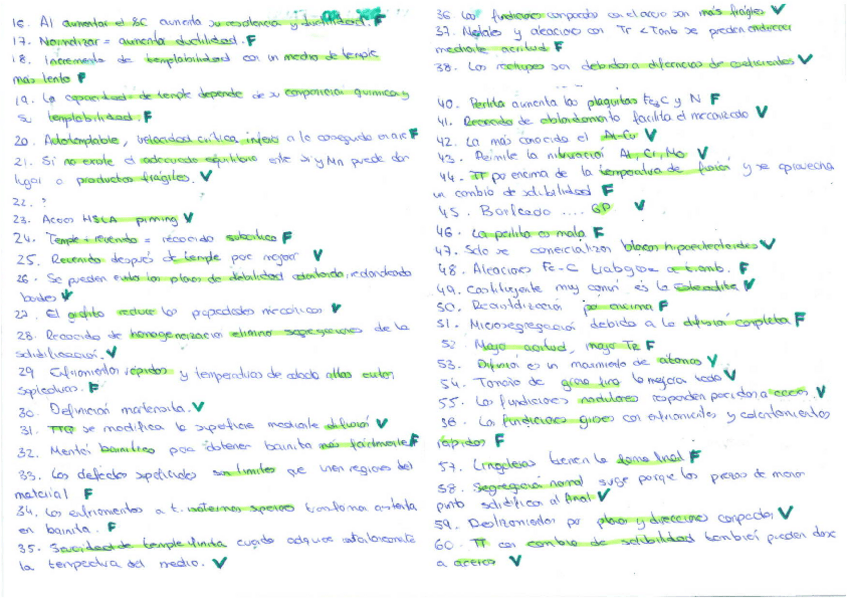 16. Al aumentar el %C aumenta su resistencia y ductilidad. F
17. Normalizar = aumenta ductilidad. F
18. Incremento de templabilidad con un medio de temple
más lento F
19. La capacidad de temple depende de su composición química y
su templabilidad. F
20. Autotemplable, velocidad crítica inferior a la conseguida en aire F
21. Si no existe el adecuado equilibrio entre Si y Mn puede dar
lugar a productos frágiles. V
22. ?
23. Aceros HSLA pinning V
24. Temple + revenido = recocido subcrítico F
25. Revenido después de temple para mejorar V
26. Se pueden evitar los planos de debilidad redondeando
bordes V
27. El grafito reduce las propiedades mecánicas V
28. Recocido de homogeneización elimina segregaciones de la
solidificación. V
29. Enfriamientos rápidos y temperaturas de colada altas evitan
F
30. Definición martensita. V
31. TTQ se modifica la superficie mediante difusión V
32. Menos bainítico para obtener bainita más fácilmente F
33. Los defectos superficiales son límites que unen regiones del
material F
34. Los enfriamientos a t. transforma austenita
en bainita. F
35. Severidad de temple infinita cuando adquiere instantáneamente
la temperatura del medio. V
36. Las fundiciones comparado con el acero son más frágiles V
37. Metales y aleaciones con Tr < Tamb se pueden endurecer
mediante acritud F
38. Los rechupes son debidos a diferencias de coeficientes V
40. Perlita aumenta las plaquitas Fe3C y N F
41. Recocido de ablandamiento facilita el mecanizado V
42. La más conocida el Al-Cu V
43. Permite la nitruración Al, Cr, Mo V
44. TT por encima de la temperatura de fusión y se aprovecha
un cambio de solubilidad F
45. .... GP V
46. La perlita es mala F
47. Solo se comercializan blancas hipoeutectoides V
48. Aleaciones Fe-C a tamb. F
49. Constituyente muy común es la esteadita V
50. Recristalización por encima F
51. Microsegregación debido a la difusión completa F
52. Mayor acritud, mayor TR F
53. Difusión es un movimiento de átomos V
54. Tamaño de grano fino lo mejora todo V
55. Las fundiciones nodulares responden parecido a aceros. V
56. Las fundiciones grises con enfriamientos y calentamientos
rápidos F
57. tienen la forma final F
58. Segregación normal surge porque las piezas de menor
punto solidifican al final V
59. Deslizamientos por planos y direcciones compactos V
60. TT con cambio de solubilidad también pueden darse
a aceros V